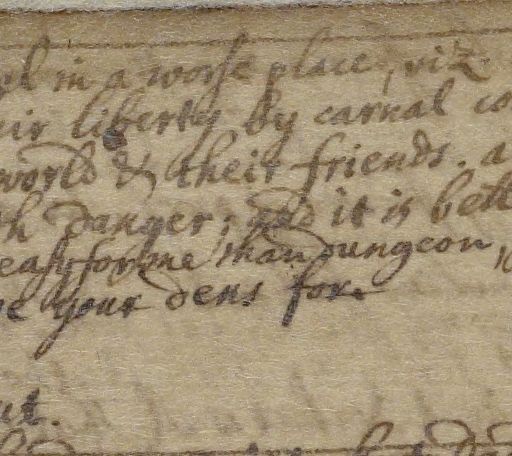 in a worse place, viz.
eir liberty by carnal co
world & their friends. a
th danger; and it is bett
easy for me than dungeon,
ve your dens for.
ut.